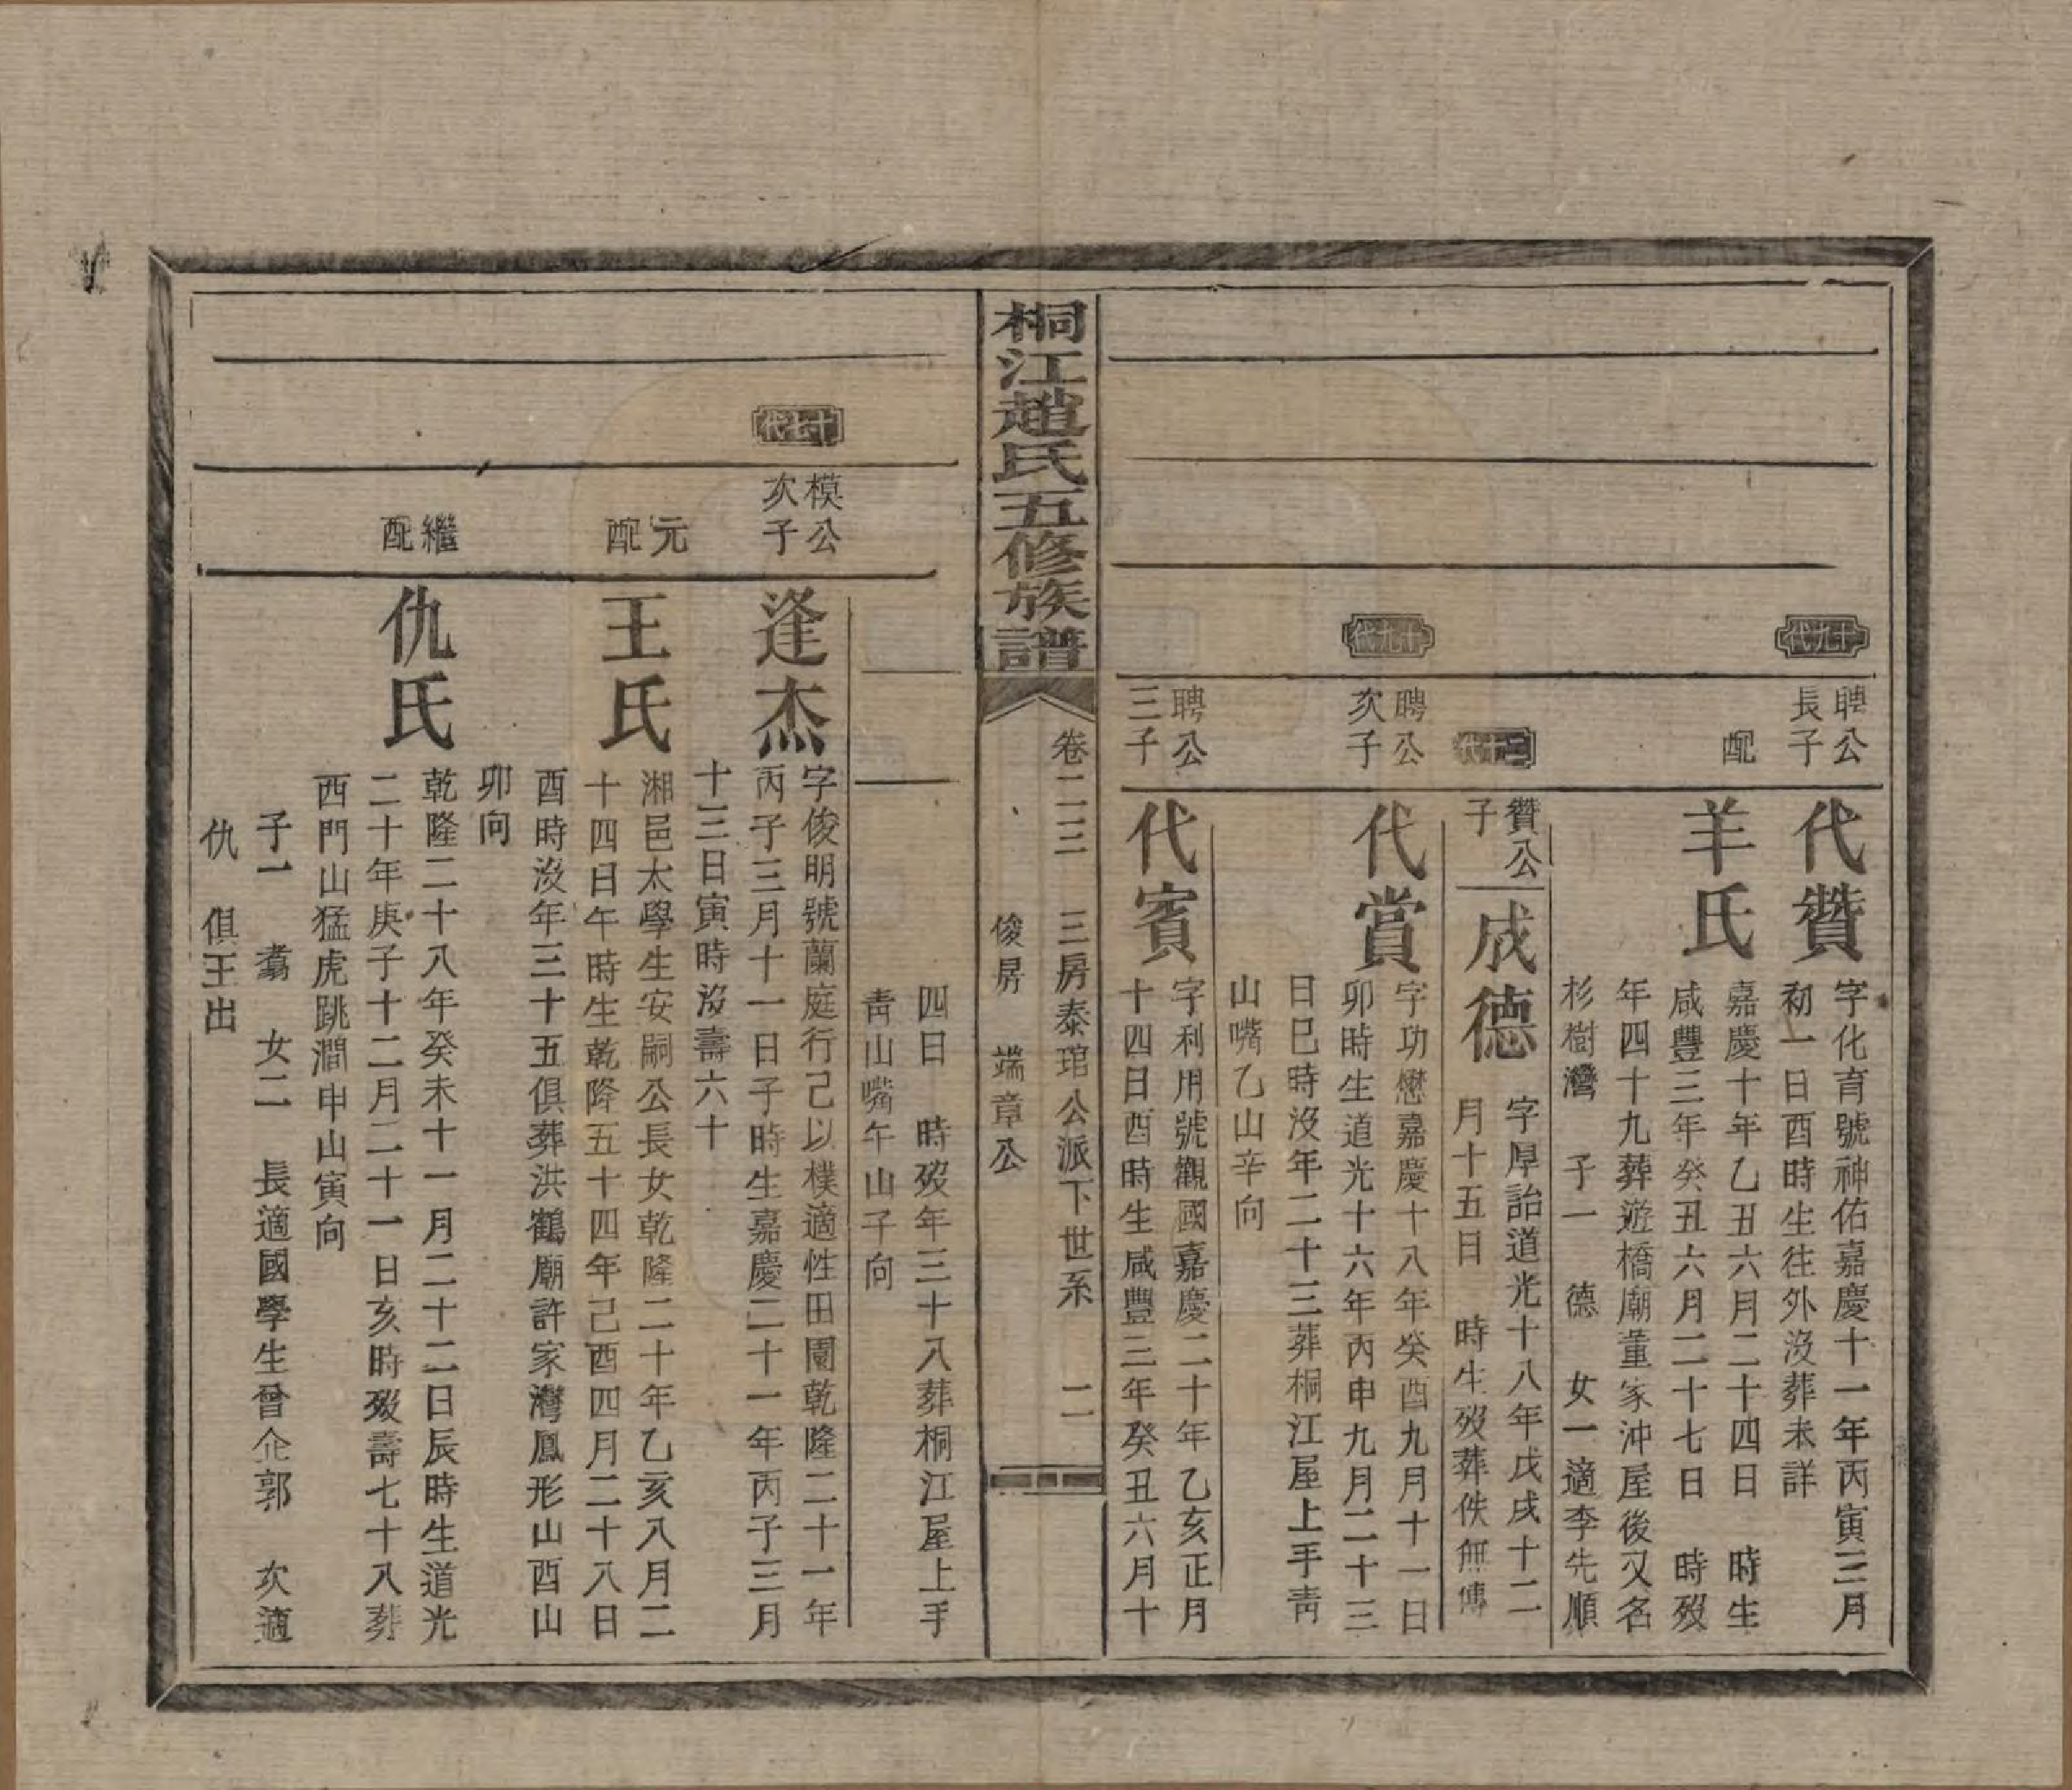 十九代
聘公
長子
代贊
字化育號神佑嘉慶十一年丙寅三月
初一日酉時生往外沒葬未詳
配
羊氏
嘉慶十年乙丑六月二十四日　時生
咸豐三年癸丑六月二十七日　時歿
年四十九葬遊橋廟董家沖屋後又名
杉樹灣　子一　德　女一適李先順
贊公
子
成德
字厚詒道光十八年戊戌十二
月十五日　時生歿葬佚無傳
十九代
聘公
次子
代賞
字功懋嘉慶十八年癸酉九月十一日
卯時生道光十六年丙申九月二十三
日巳時沒年二十三葬桐江屋上手靑
山嘴乙山辛向
聘公
三子
代賓
字利用號觀國嘉慶二十年乙亥正月
十四日酉時生咸豐三年癸丑六月十
桐江趙氏五修族譜
卷二三　三房泰琯公派下世系　二
俊房　端章公
四日　時歿年三十八葬桐江屋上手
靑山嘴午山子向
十七代
模公
次子
逢杰
字俊明號蘭庭行己以樸適性田園乾隆二十一年
丙子三月十一日子時生嘉慶二十一年丙子三月
十三日寅時沒壽六十
元
配
王氏
湘邑太學生安嗣公長女乾隆二十年乙亥八月二
十四日午時生乾隆五十四年己酉四月二十八日
酉時沒年三十五俱葬洪鶴廟許家灣鳳形山酉山
卯向
繼
配
仇氏
乾隆二十八年癸未十一月二十二日辰時生道光
二十年庚子十二月二十一日亥時歿壽七十八葬
西門山猛虎跳澗申山寅向
子一　翥　女二　長適國學生曾企郭　次適
仇　俱王出